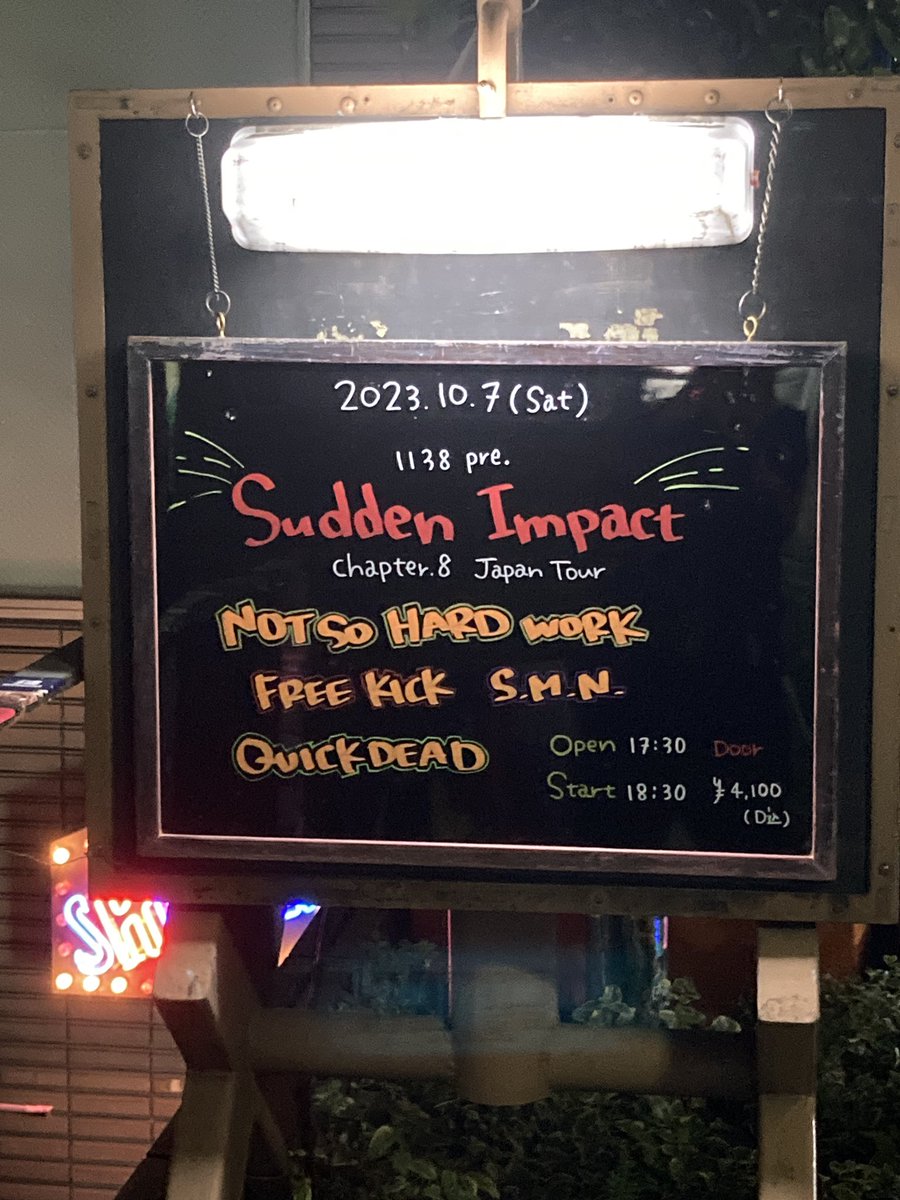 2023.10.7 (Sat)
1138 pre.
Sudden Impact
chapter.8 Japan Tour
NOT SO HARD WORK
FREE KICK S.M.N.
QUICKDEAD
Open 17:30 Door
Start 18:30 ¥4,100
(D込)